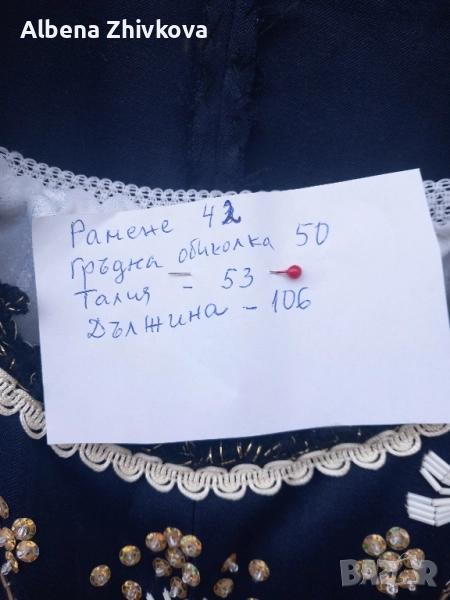 Albena Zhivkova
Рамене 42
Гръдна обиколка 50
Талия - 53
Дължина - 106
BAZAR